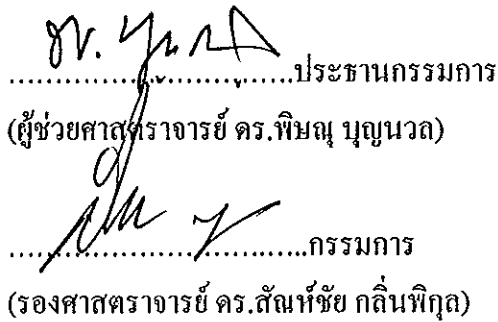 ประธานกรรมการ
(ผู้ช่วยศาสตราจารย์ ดร.พิษณุ บุญนวล)
กรรมการ
(รองศาสตราจารย์ ดร.สัณห์ชัย กลิ่นพิกุล)